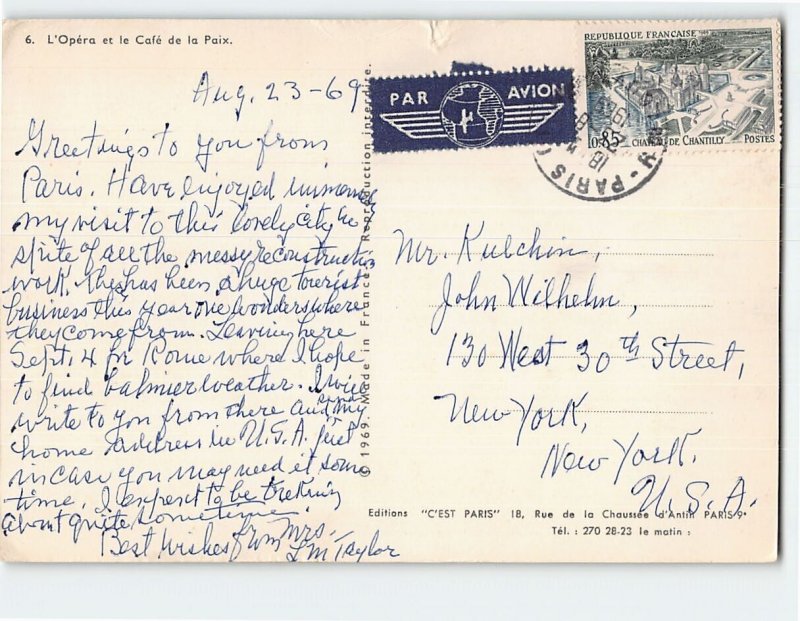 6. L'Opéra et le Café de la Paix.
Aug. 23-69
Greetings to you from
Paris. Have enjoyed immense
my visit to this lovely city in
spite of all the messy reconstruction
work. She has been a huge tourist
business this year one wonders where
they come from. Leaving here
Sept. 4 for Rome where I hope
to find balmier weather. I will
write to you from there and send my
home address in U.S.A. just
in case you may need it some
time. I expect to be
about quite sometime.
Best Wishes from Mrs.
L M Taylor
© 1969. Made in France. Reproduction interdite.
PAR AVION
REPUBLIQUE FRANÇAISE
0.85
CHATEAU DE CHANTILLY
POSTES
PARIS
Mr. Kulchin,
John Wilhelm,
130 West 30th Street,
New York,
New York.
U.S.A.
Editions "C'EST PARIS" 18, Rue de la Chaussée d'Antin PARIS-9e
Tél. : 270 28-23 le matin :